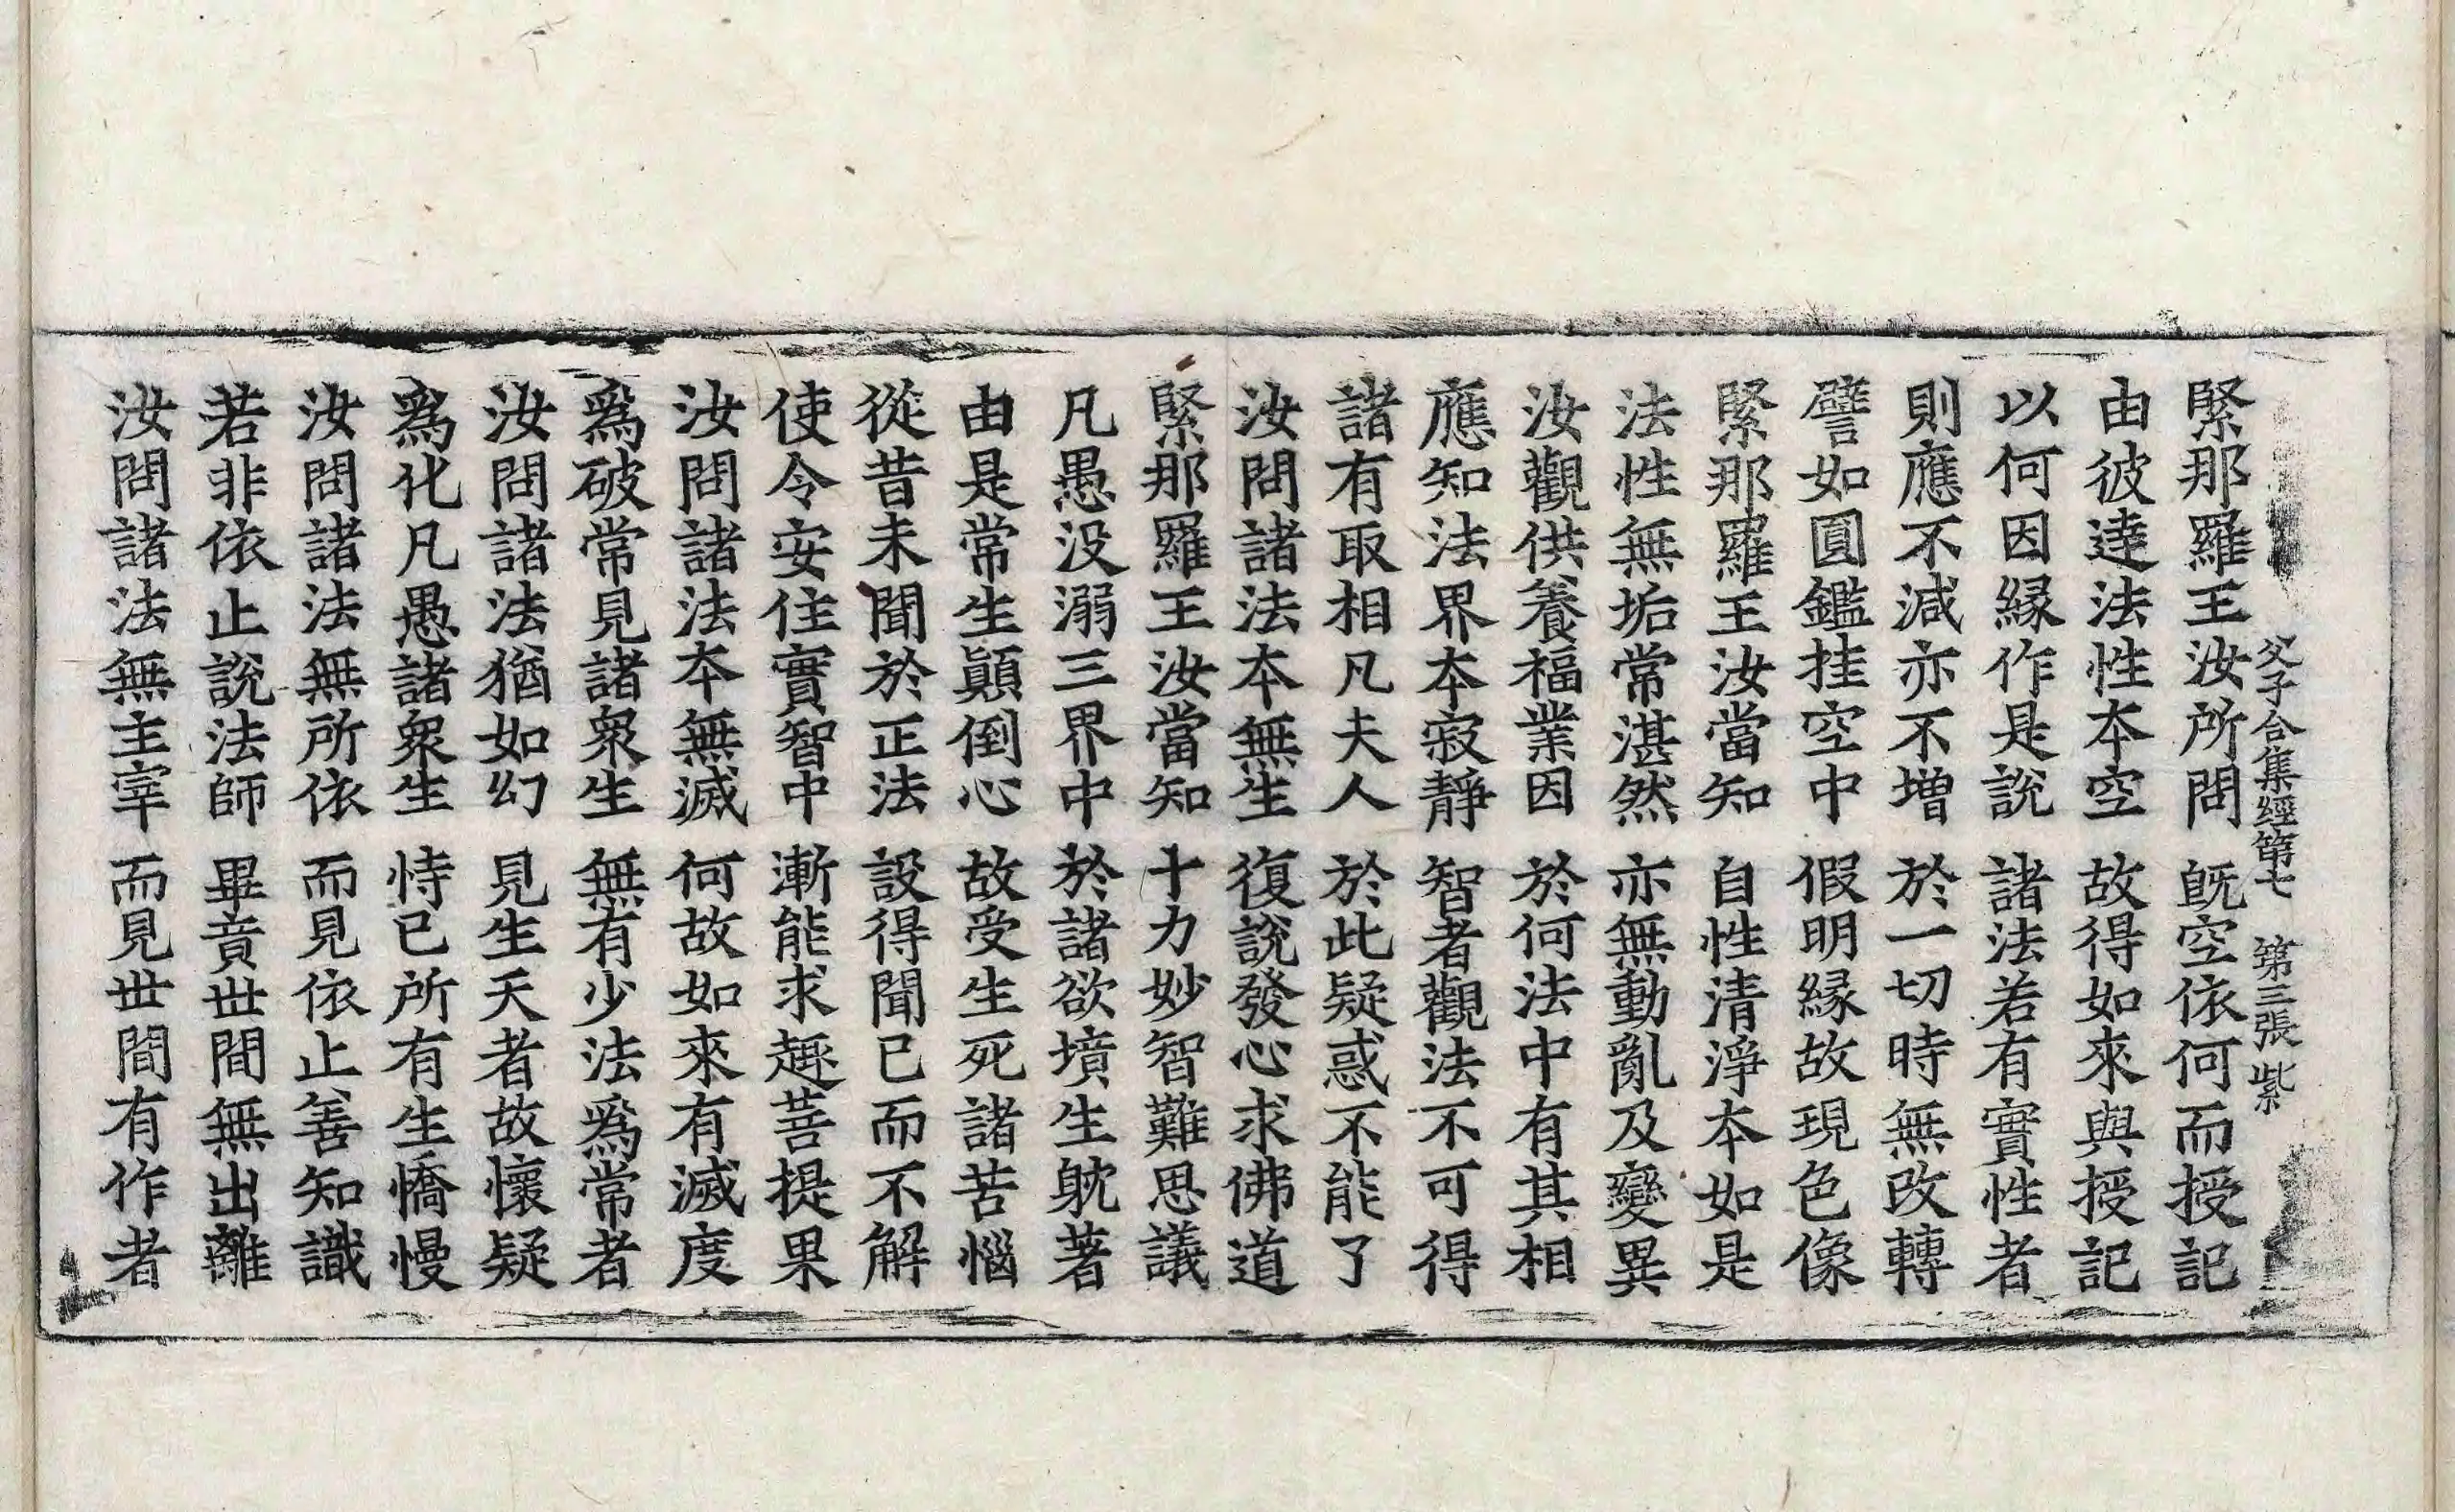 父子合集經第七 第三張 紫
緊那羅王汝所問 旣空依何而授記
由彼達法性本空 故得如來與授記
以何因緣作是說 諸法若有實性者
則應不減亦不增 於一切時無改轉
譬如圓鑑挂空中 假明緣故現色像
緊那羅王汝當知 自性清淨本如是
法性無垢常湛然 亦無動亂及變異
汝觀供養福業因 於何法中有其相
應知法界本寂靜 智者觀法不可得
諸有取相凡夫人 於此疑惑不能了
汝問諸法本無生 復說發心求佛道
緊那羅王汝當知 十力妙智難思議
凡愚没溺三界中 於諸欲墳生躭著
由是常生顚倒心 故受生死諸苦惱
從昔未聞於正法 設得聞已而不解
使令安住實智中 漸能求趣菩提果
汝問諸法本無滅 何故如來有滅度
爲破常見諸衆生 無有少法爲常者
汝問諸法猶如幻 見生天者故懷疑
爲化凡愚諸衆生 恃已所有生憍慢
汝問諸法無所依 而見依止善知識
若非依止說法師 畢竟世間無出離
汝問諸法無主宰 而見世間有作者